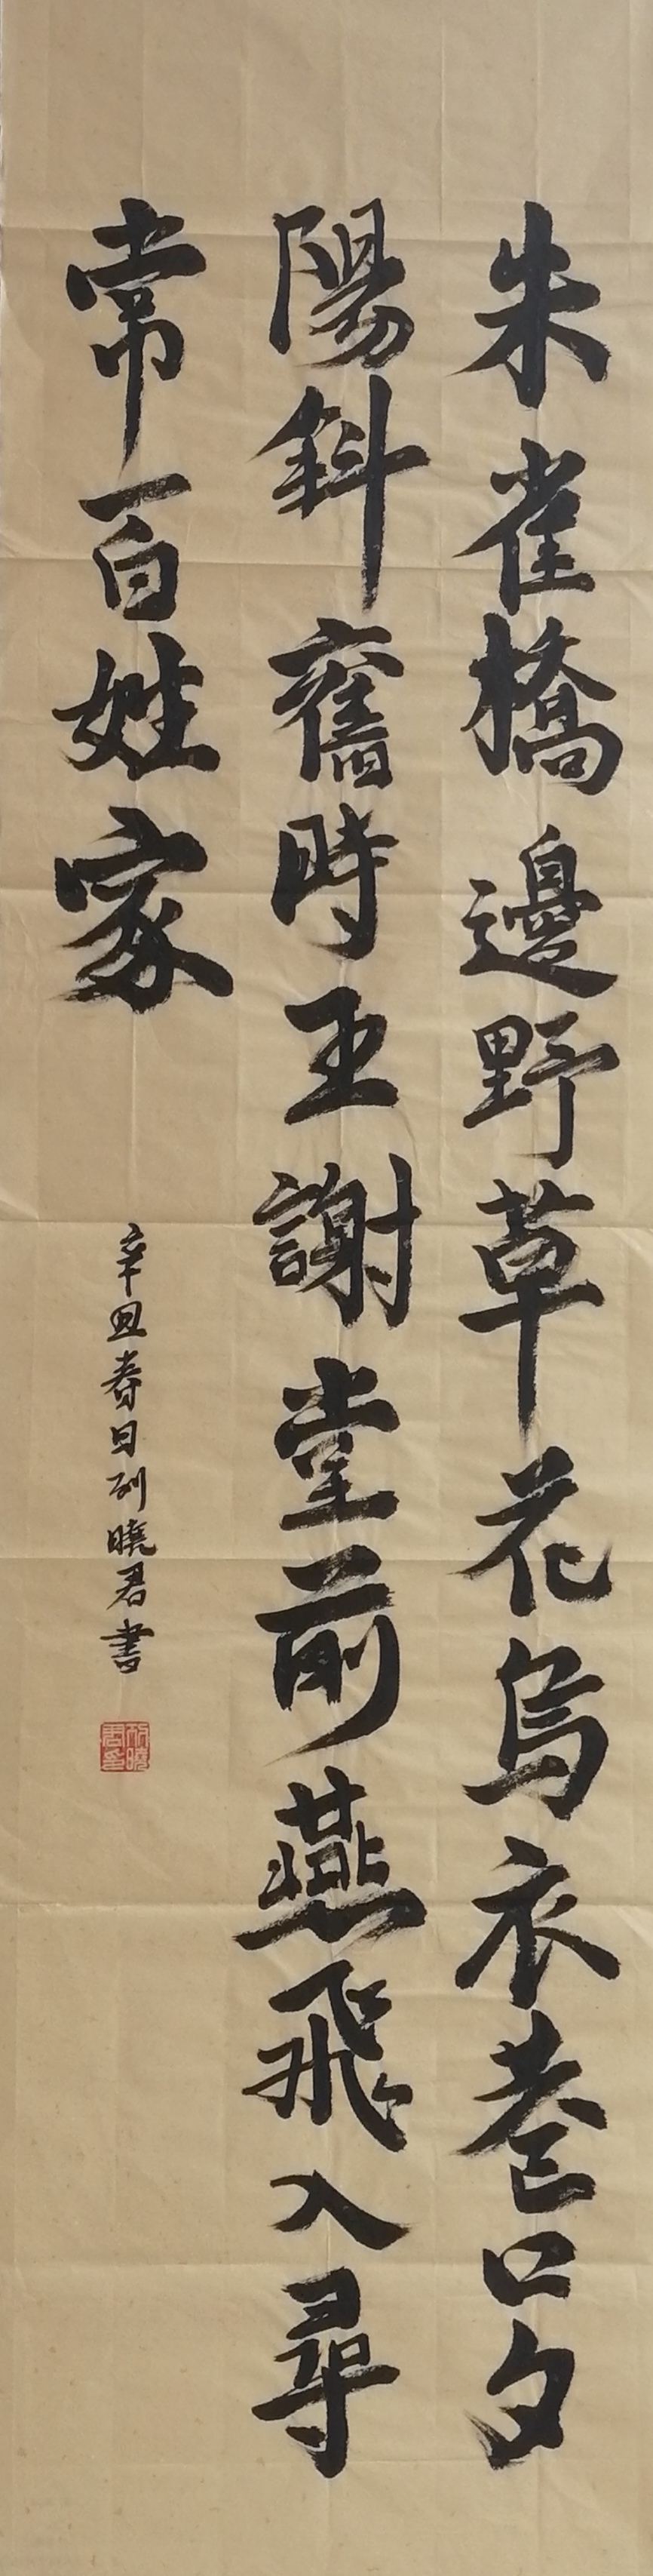 朱雀橋邊野草花烏衣巷口夕
陽斜舊時王謝堂前燕飛入尋
常百姓家
辛丑春日刘曉君書